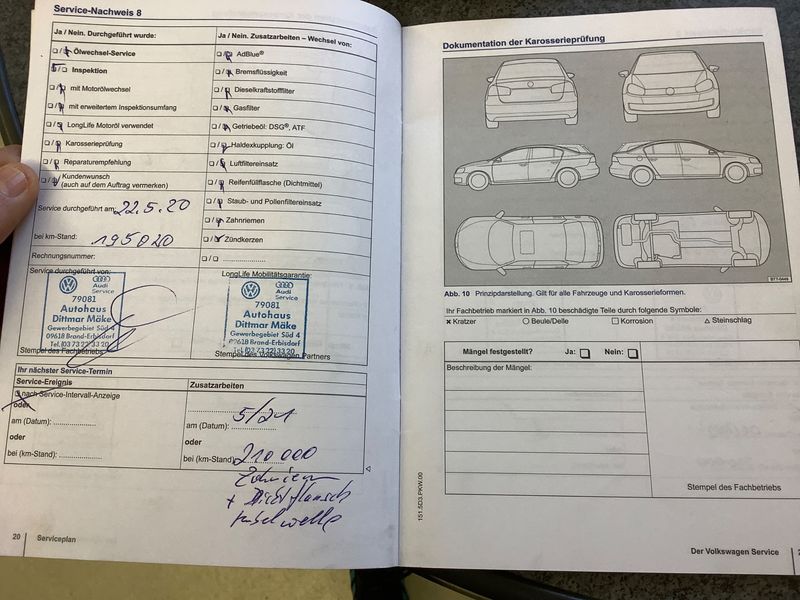 Service-Nachweis 8
Ja / Nein. Durchgeführt wurde:
Ölwechsel-Service
Inspektion
mit Motorölwechsel
mit erweitertem Inspektionsumfang
LongLife Motoröl verwendet
Karosserieprüfung
Reparaturempfehlung
Kundenwunsch
(auch auf dem Auftrag vermerken)
Service durchgeführt am: 22.5.20
bei km-Stand: 195020
Rechnungsnummer:
Service durchgeführt von:
Audi
Service
79081
Autohaus
Dittmar Mäke
Gewerbegebiet Süd 4
09618 Brand-Erbisdorf
Tel. (03 73 22) 33 20
Stempel des Fachbetriebs
Ja / Nein. Zusatzarbeiten – Wechsel von:
AdBlue®
Bremsflüssigkeit
Dieselkraftstofffilter
Gasfilter
Getriebeöl: DSG®, ATF
Haldexkupplung: Öl
Luftfiltereinsatz
Reifenfüllflasche (Dichtmittel)
Staub- und Pollenfiltereinsatz
Zahnriemen
Zündkerzen
LongLife Mobilitätsgarantie:
Audi
Service
79081
Autohaus
Dittmar Mäke
Gewerbegebiet Süd 4
09618 Brand-Erbisdorf
Tel. (03 73 22) 33 20
Stempel des Volkswagen Partners
Ihr nächster Service-Termin
Service-Ereignis
nach Service-Intervall-Anzeige
oder
am (Datum):
oder
bei (km-Stand):
Zusatzarbeiten
am (Datum): 5/21
oder
bei (km-Stand): 210 000
Zahnriem
+ Dichtflansch
Kurbelwelle
20 Serviceplan
Dokumentation der Karosserieprüfung
B7T-0449
Abb. 10 Prinzipdarstellung. Gilt für alle Fahrzeuge und Karosserieformen.
Ihr Fachbetrieb markiert in Abb. 10 beschädigte Teile durch folgende Symbole:
× Kratzer ○ Beule/Delle □ Korrosion △ Steinschlag
Mängel festgestellt? Ja: Nein:
Beschreibung der Mängel:
Stempel des Fachbetriebs
151.5D3.PKW.00
Der Volkswagen Service